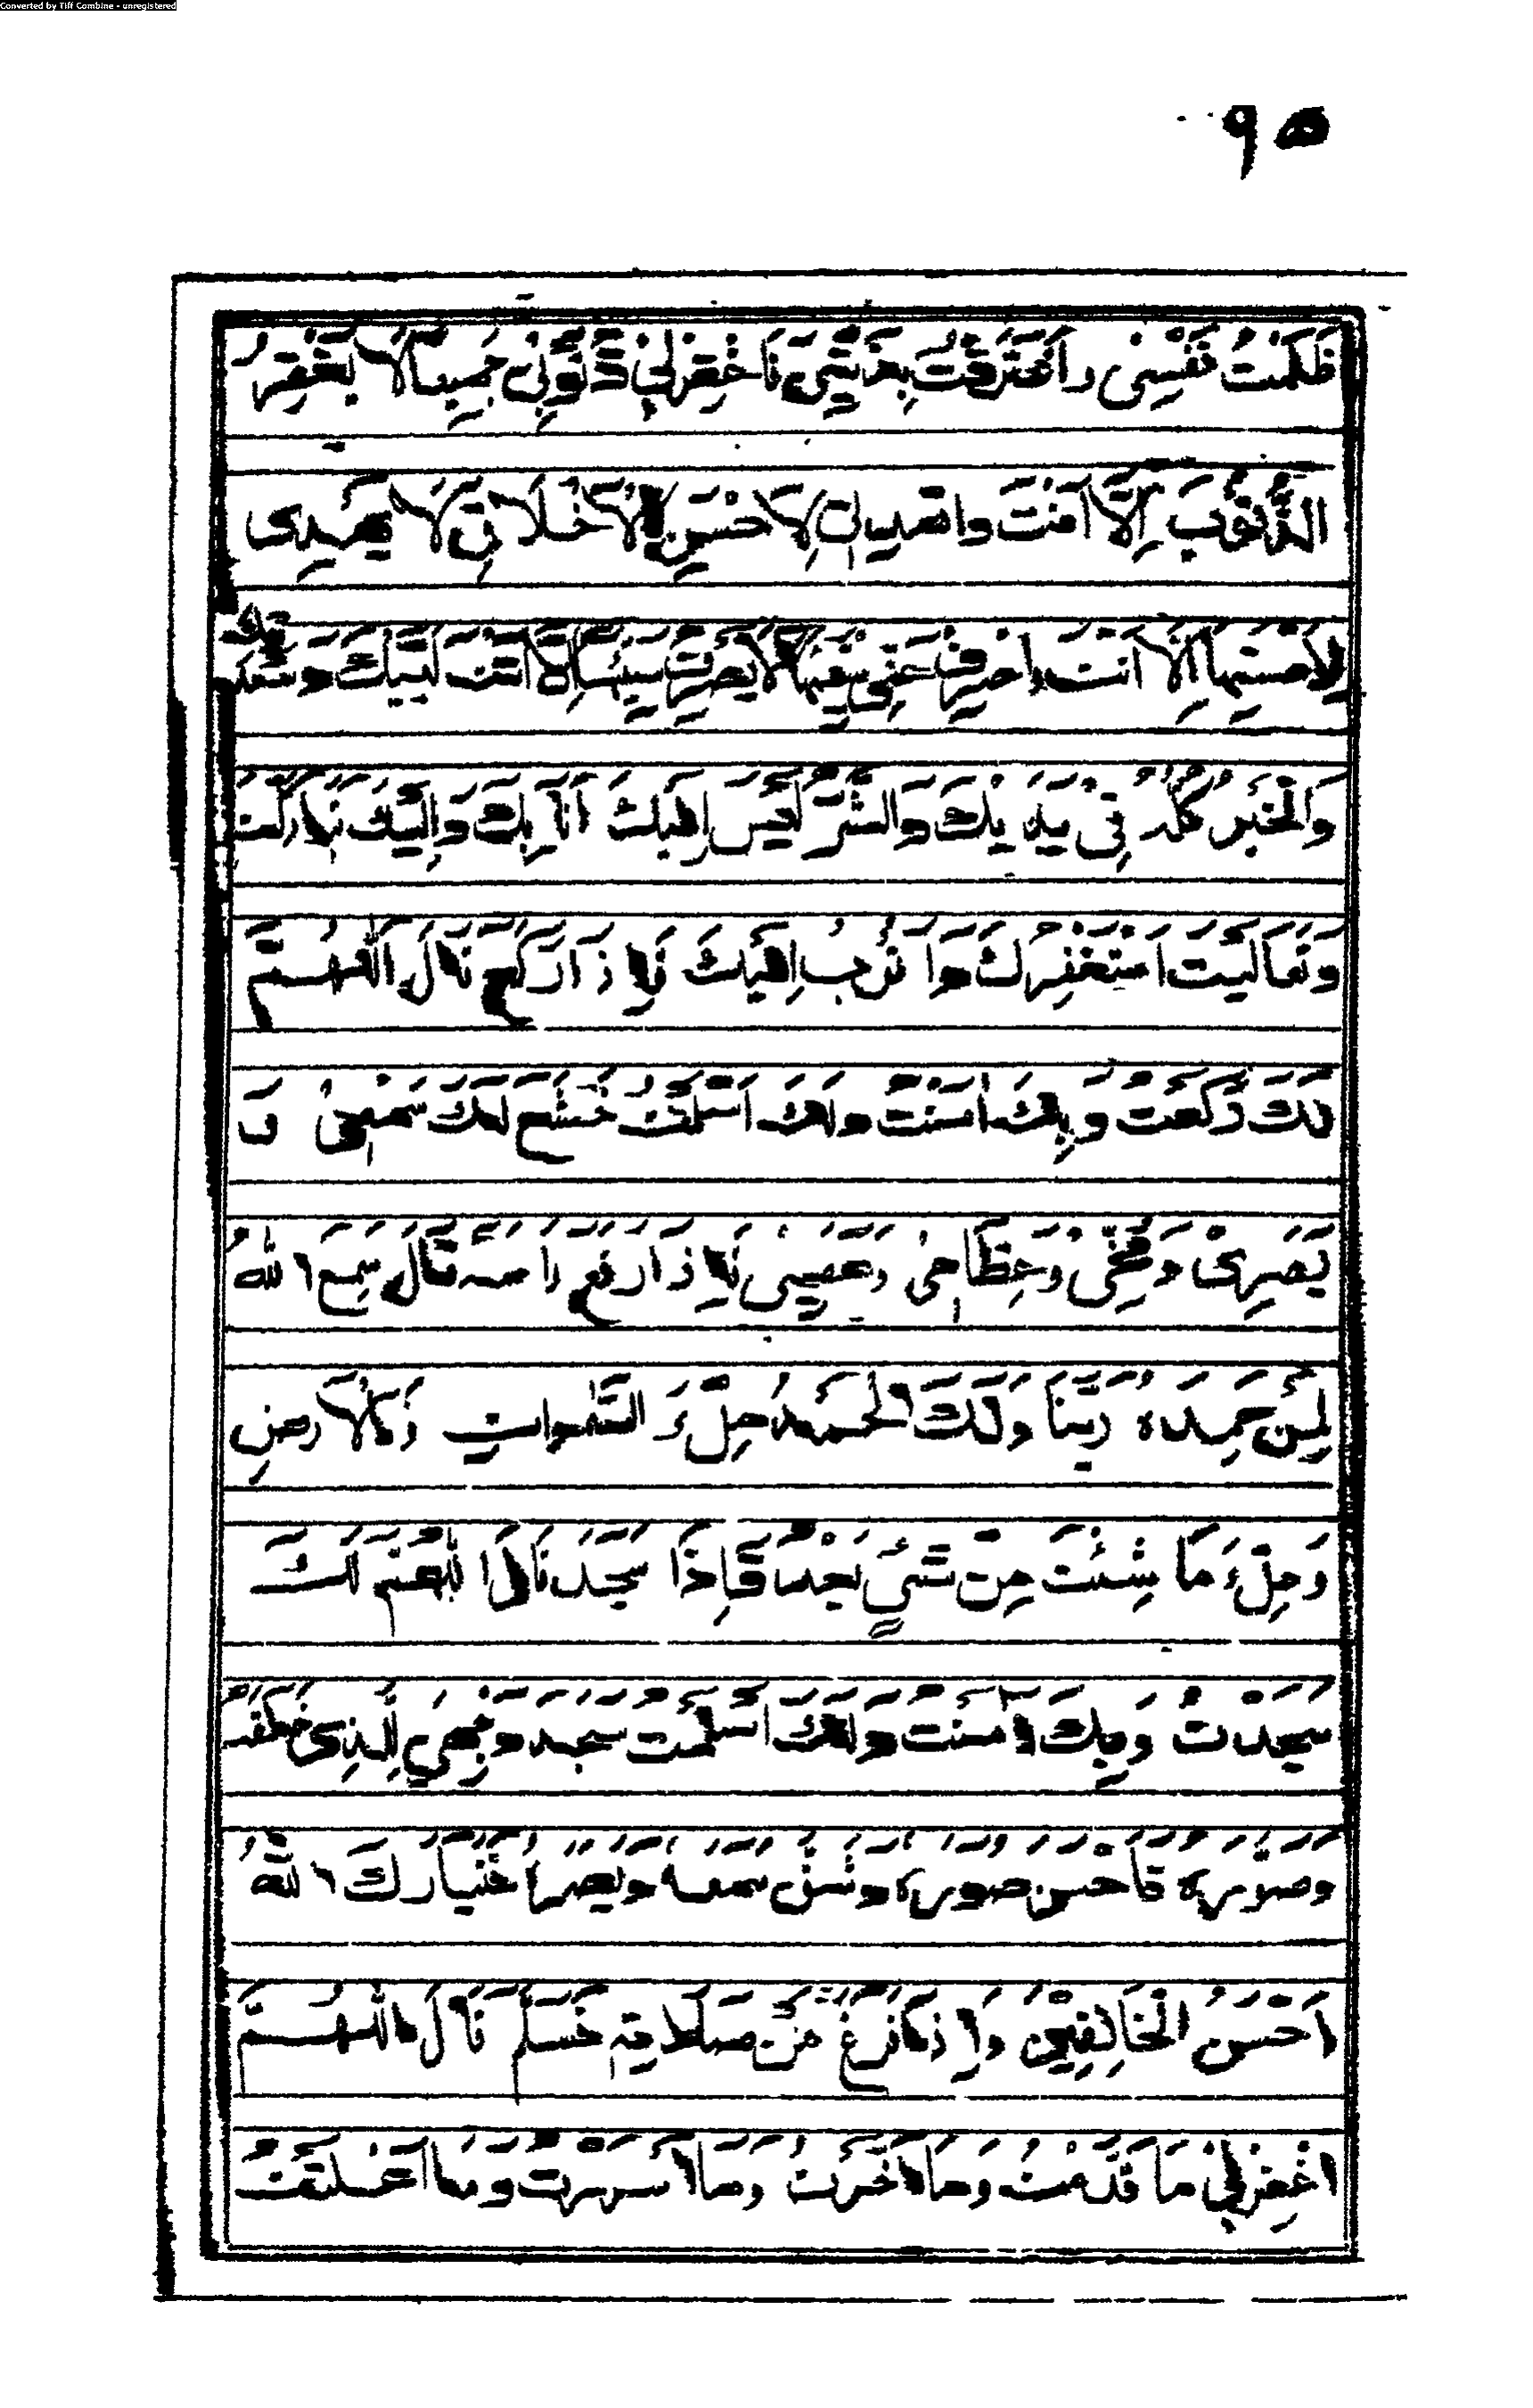 Converted by Tiff Combine - unregistered
٩٥
ظَلَمْتُ نَفْسِي وَاعْتَرَفْتُ بِذَنْبِي فَاغْفِرْ لِي ذُنُوبِي جَمِيعًا لَا يَغْفِرُ
الذُّنُوبَ إِلَّا أَنْتَ وَاهْدِنِي لِأَحْسَنِ الْأَخْلَاقِ لَا يَهْدِي
لِأَحْسَنِهَا إِلَّا أَنْتَ وَاصْرِفْ عَنِّي سَيِّئَهَا لَا يَصْرِفُ سَيِّئَهَا إِلَّا أَنْتَ لَبَّيْكَ وَسَعْدَيْكَ
وَالْخَيْرُ كُلُّهُ فِي يَدَيْكَ وَالشَّرُّ لَيْسَ إِلَيْكَ أَنَا بِكَ وَإِلَيْكَ تَبَارَكْتَ
وَتَعَالَيْتَ أَسْتَغْفِرُكَ وَأَتُوبُ إِلَيْكَ فَإِذَا رَكَعَ قَالَ اَللّٰهُمَّ
لَكَ رَكَعْتُ وَبِكَ آمَنْتُ وَلَكَ أَسْلَمْتُ خَشَعَ لَكَ سَمْعِي وَ
بَصَرِي وَمُخِّي وَعِظَامِي وَعَصَبِي فَإِذَا رَفَعَ رَأْسَهُ قَالَ سَمِعَ اللّٰهُ
لِمَنْ حَمِدَهُ رَبَّنَا وَلَكَ الْحَمْدُ مِلْءَ السَّمٰوَاتِ وَالْأَرْضِ
وَمِلْءَ مَا شِئْتَ مِنْ شَيْءٍ بَعْدُ فَإِذَا سَجَدَ قَالَ اللّٰهُمَّ لَكَ
سَجَدْتُ وَبِكَ آمَنْتُ وَلَكَ أَسْلَمْتُ سَجَدَ وَجْهِيَ لِلَّذِي خَلَقَهُ
وَصَوَّرَهُ فَأَحْسَنَ صُوَرَهُ وَشَقَّ سَمْعَهُ وَبَصَرَهُ فَتَبَارَكَ اللّٰهُ
أَحْسَنُ الْخَالِقِينَ وَإِذَا فَرَغَ مِنْ صَلَاتِهِ فَسَلَّمَ قَالَ اللّٰهُمَّ
اغْفِرْ لِي مَا قَدَّمْتُ وَمَا أَخَّرْتُ وَمَا أَسْرَرْتُ وَمَا أَعْلَنْتُ